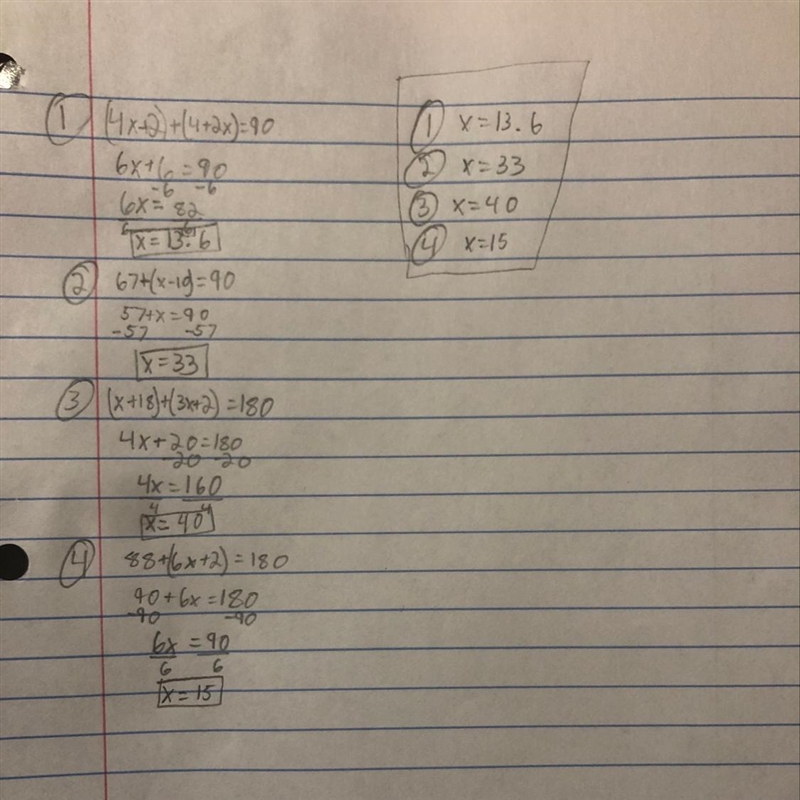 ① (4x+2)+(4+2x)=90
6x+6=90
-6 -6
6x=82
6 6
x=13.6
② 67+(x-10)=90
57+x=90
-57 -57
x=33
③ (x+18)+(3x+2)=180
4x+20=180
-20 -20
4x=160
4 4
x=40
④ 88+(6x+2)=180
90+6x=180
-90 -90
6x=90
6 6
x=15
① x=13.6
② x=33
③ x=40
④ x=15